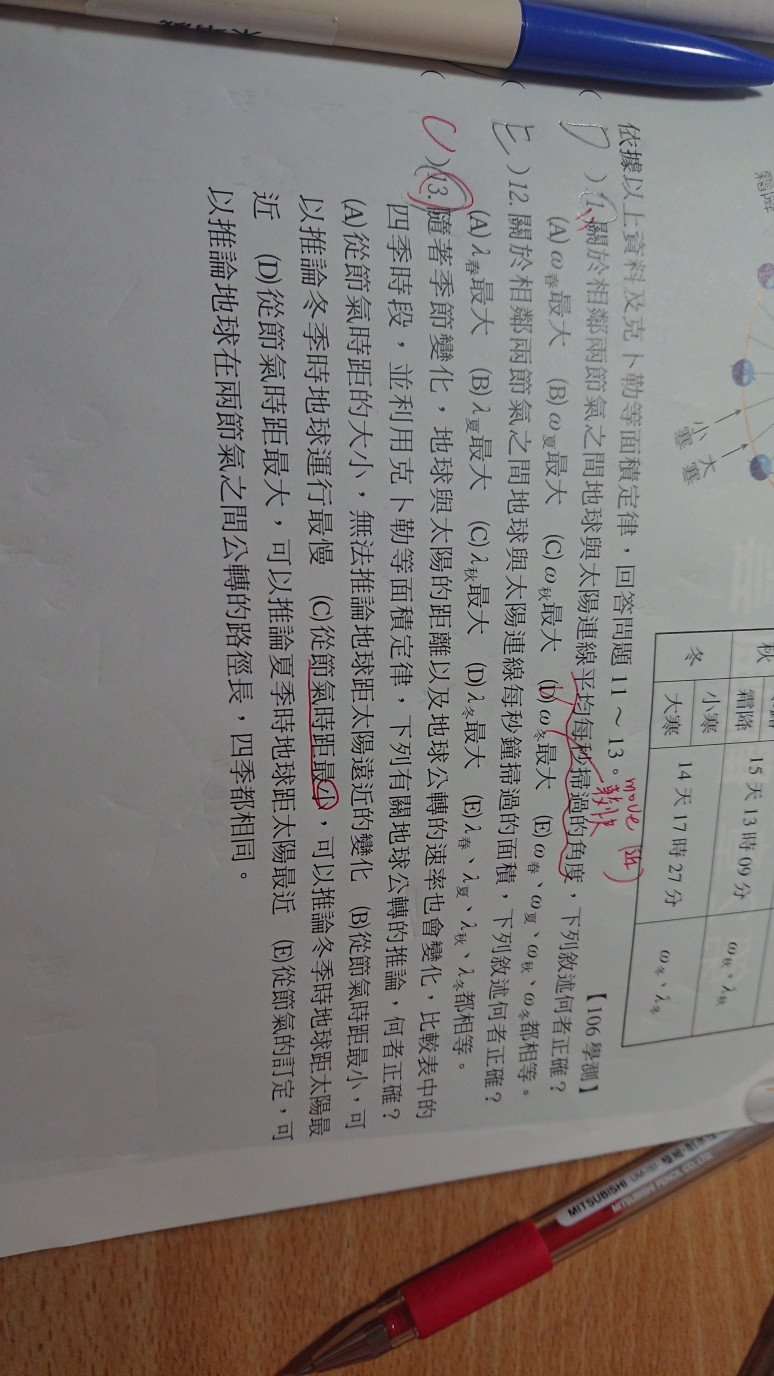 霜降
小寒
大寒
秋
霜降
15 天 13 時 09 分
ω秋、λ秋
冬
小寒
大寒
14 天 17 時 27 分
ω冬、λ冬
move (近)
較快
依據以上資料及克卜勒等面積定律，回答問題 11 ～ 13。
【106 學測】
( D ) 11. 關於相鄰兩節氣之間地球與太陽連線平均每秒掃過的角度，下列敘述何者正確？
(A) ω春最大 (B) ω夏最大 (C) ω秋最大 (D) ω冬最大 (E) ω春、ω夏、ω秋、ω冬都相等。
( E ) 12. 關於相鄰兩節氣之間地球與太陽連線每秒鐘掃過的面積，下列敘述何者正確？
(A) λ春最大 (B) λ夏最大 (C) λ秋最大 (D) λ冬最大 (E) λ春、λ夏、λ秋、λ冬都相等。
( C ) 13. 隨著季節變化，地球與太陽的距離以及地球公轉的速率也會變化，比較表中的
四季時段，並利用克卜勒等面積定律，下列有關地球公轉的推論，何者正確？
(A) 從節氣時距的大小，無法推論地球距太陽遠近的變化 (B) 從節氣時距最小，可
以推論冬季時地球運行最慢 (C) 從節氣時距最小，可以推論冬季時地球距太陽最
近 (D) 從節氣時距最大，可以推論夏季時地球距太陽最近 (E) 從節氣的訂定，可
以推論地球在兩節氣之間公轉的路徑長，四季都相同。
MITSUBISHI
MITSUBISHI PENCIL CO., LTD